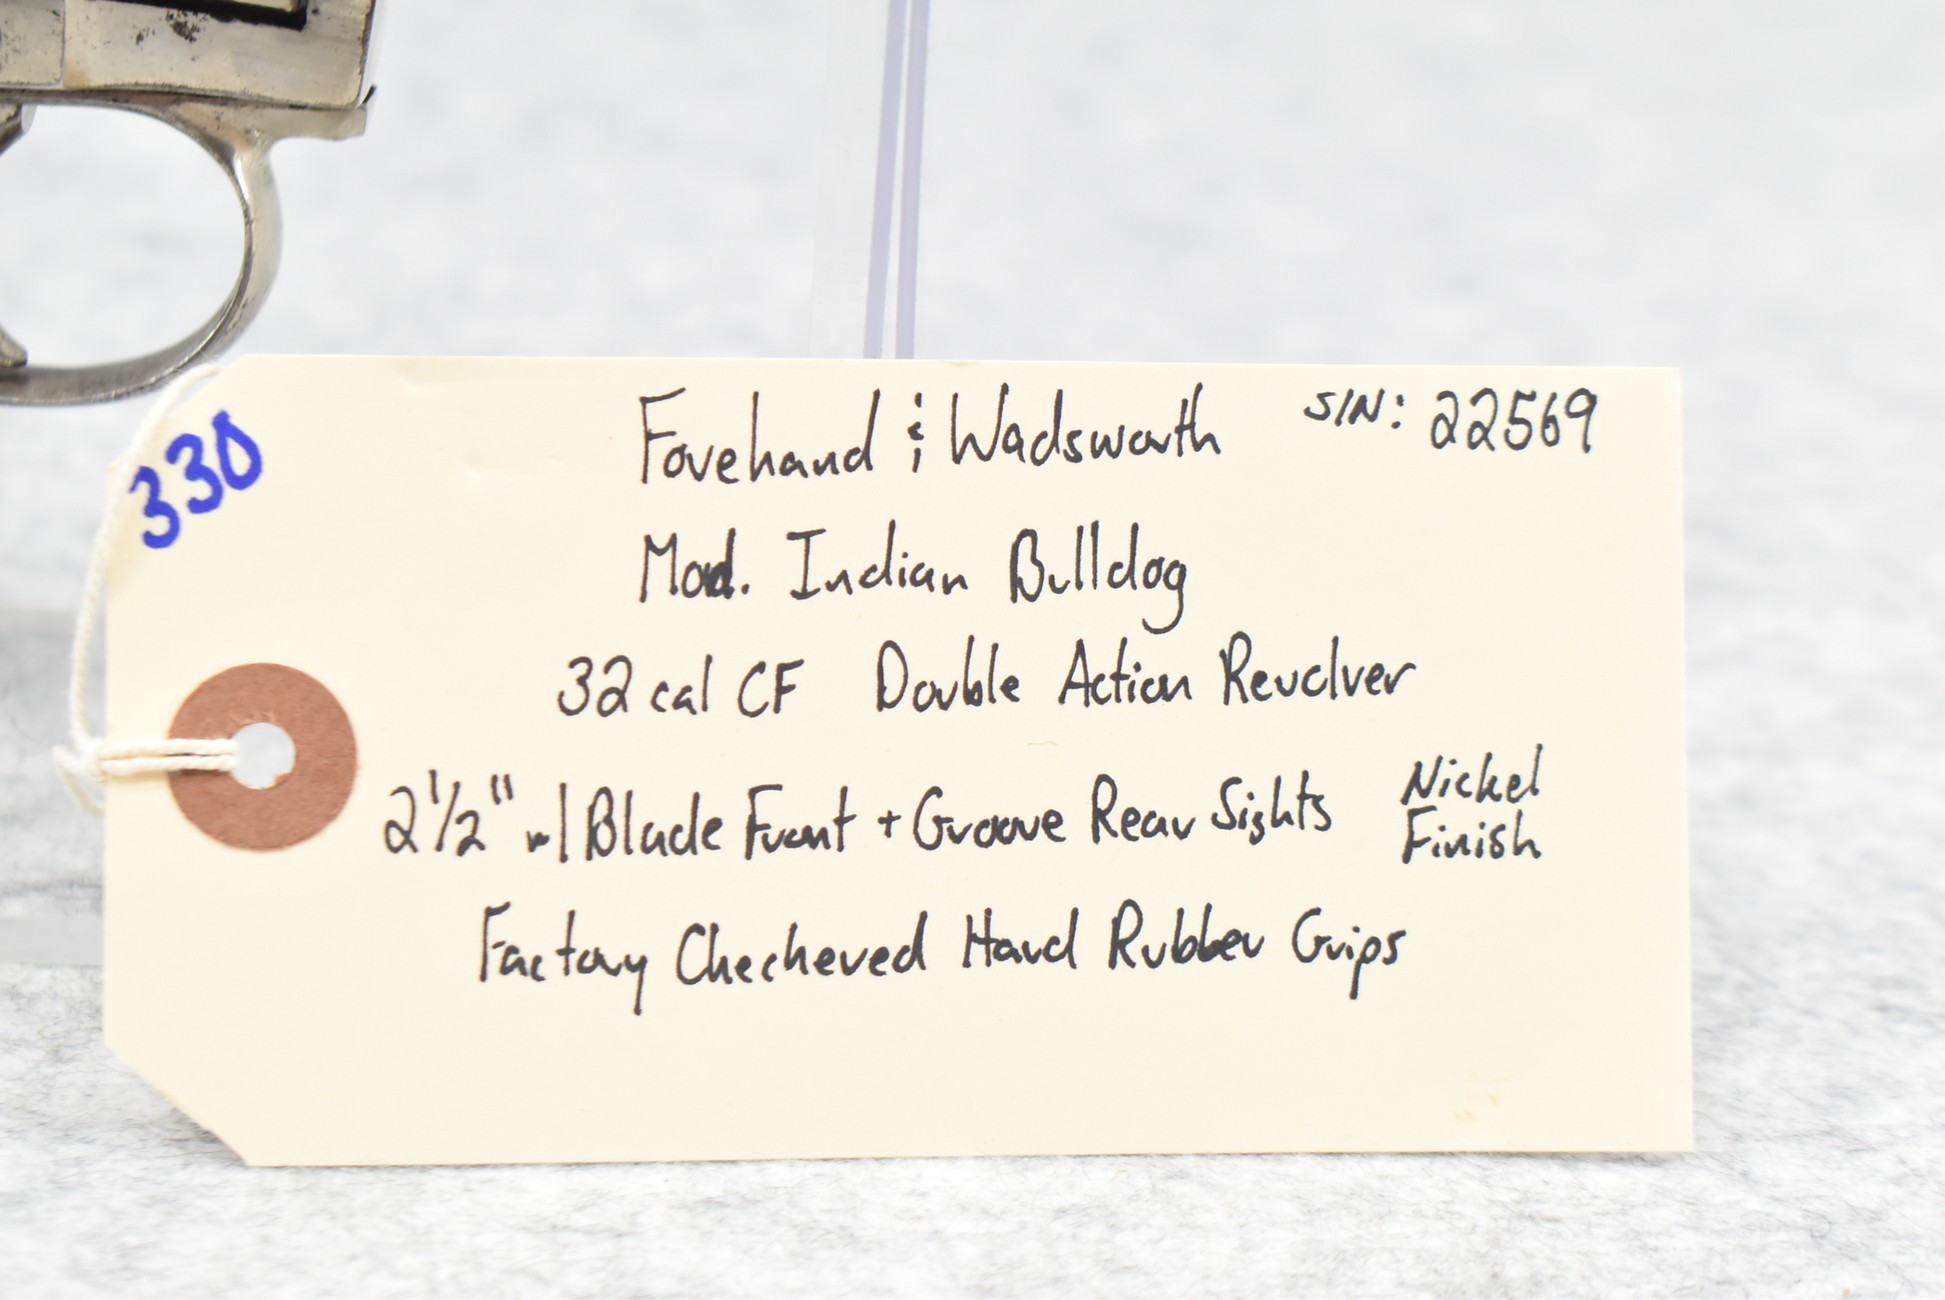 330
Forehand & Wadsworth S/N: 22569
Mod. Indian Bulldog
32 cal CF Double Action Revolver
2 1/2" w/ Blade Front + Groove Rear Sights Nickel Finish
Factory Checkered Hard Rubber Grips